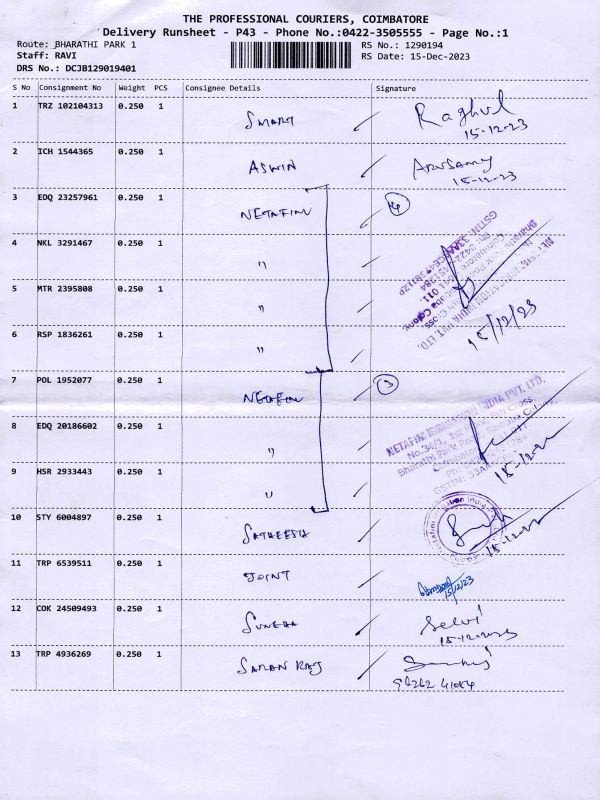 THE PROFESSIONAL COURIERS, COIMBATORE
Delivery Runsheet - P43 - Phone No.:0422-3505555 - Page No.:1
Route: BHARATHI PARK 1 RS No.: 1290194
Staff: RAVI RS Date: 15-Dec-2023
DRS No.: DCJB129019401
S No Consignment No Weight PCS Consignee Details Signature
1 TRZ 102104313 0.250 1 SMART Raghul
15-12-23
2 ICH 1544365 0.250 1 ASWIN
15-12-23
3 EDQ 23257961 0.250 1 NETAFIM 4
4 NKL 3291467 0.250 1 "
5 MTR 2395808 0.250 1 "
15/12/23
6 RSP 1836261 0.250 1 "
7 POL 1952077 0.250 1 NETAFIM 3
NETAFIM IRRIGATION INDIA PVT. LTD.
8 EDQ 20186602 0.250 1 "
9 HSR 2933443 0.250 1 "
10 STY 6004897 0.250 1 SATHEESH
11 TRP 6539511 0.250 1 JOINT
15/12/23
12 COK 24509493 0.250 1 SUNEHA Selvi
15-12-2023
13 TRP 4936269 0.250 1 SARAN RAJ